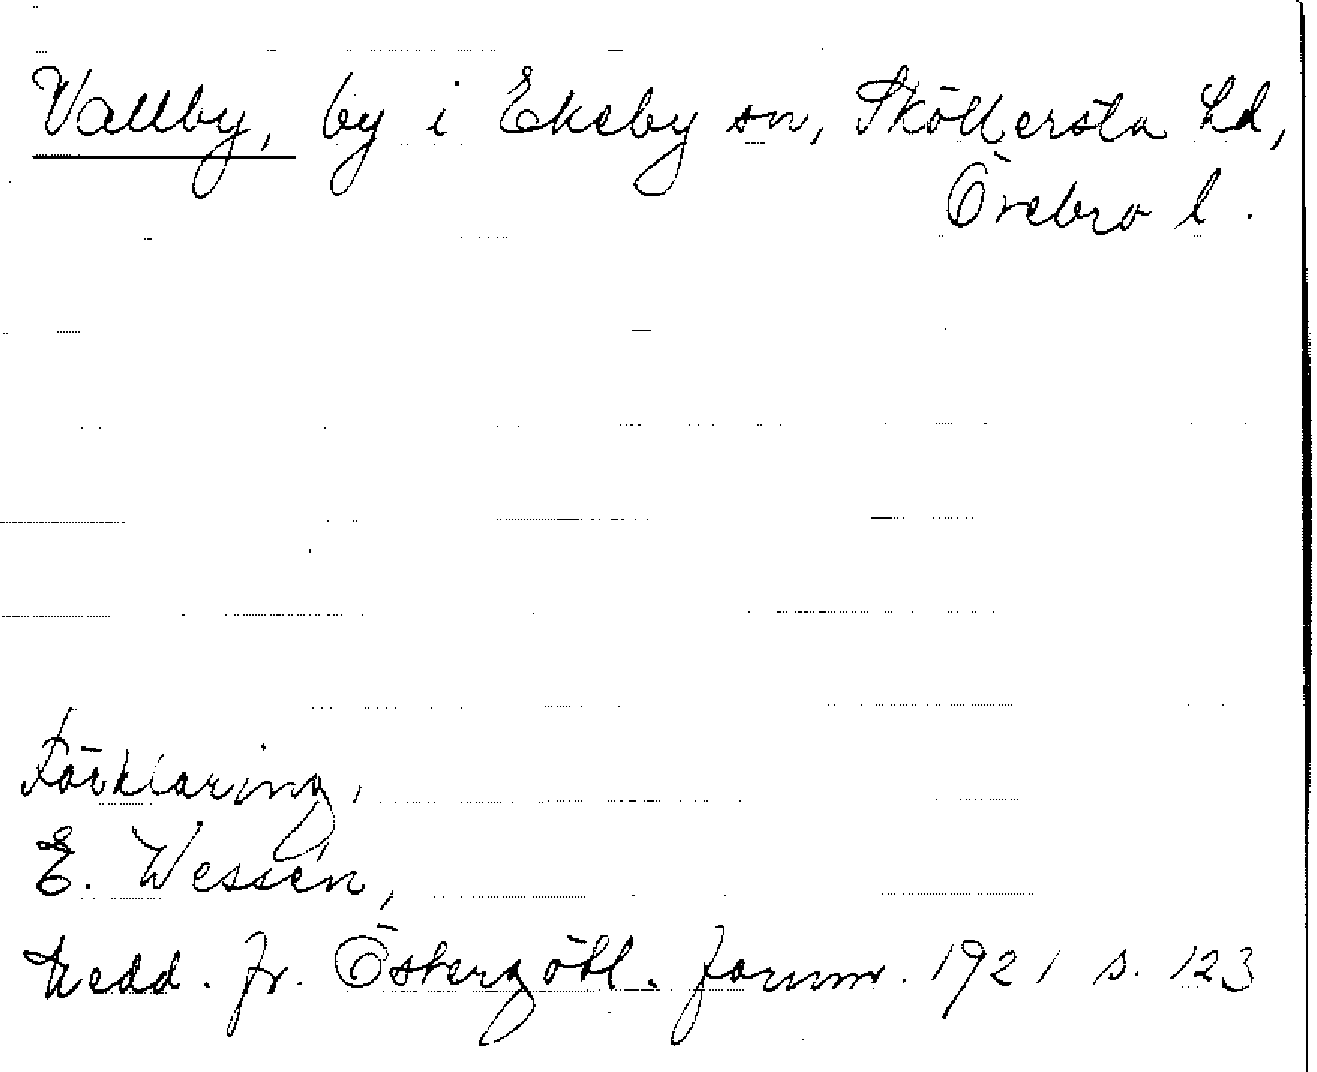 Vallby, by i Ekeby sn, Sköllersta hd,
Örebro l.
Förklaring,
E. Wessén,
Medd. fr. Östergötl. fornm. 1921 s. 123